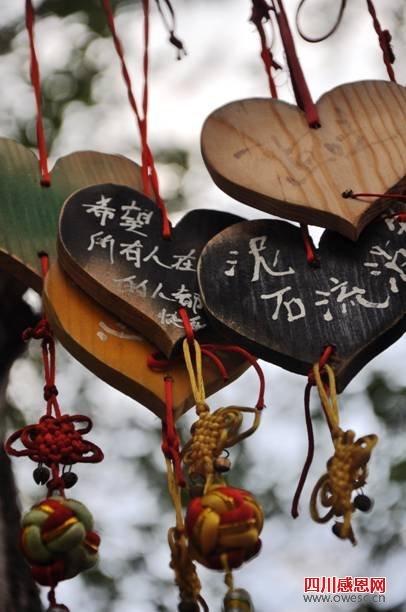 希望
所有人在
的人都
泥
石流
四川感恩网
www.owesc.cn